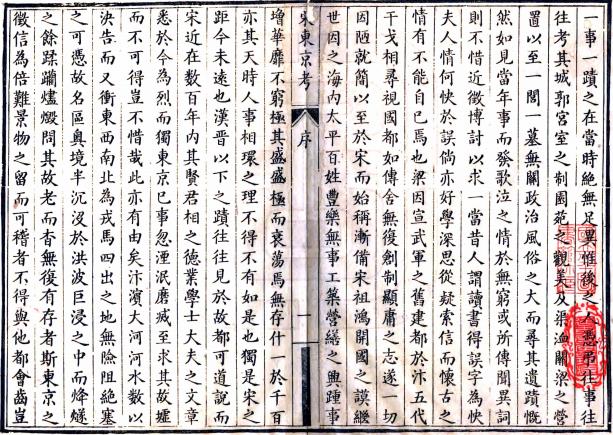 一事一蹟之在當時絶無足異惟後之人憑弔往事往
往考其城郭宮室之制園苑之觀美及渠洫關梁之營
置以至一閣一墓無關政治風俗之大而尋其遺蹟慨
然如見當年事而發歌泣之情於無窮或所傳聞異詞
則不惜近徵博討以求一當昔人謂讀書得誤字為快
夫人情何快於誤倘亦好學深思從疑索信而懷古之
情有不能自已焉也梁因宣武軍之舊建都於汴五代
干戈相尋視國都如傳舍無復創制顯庸之志遂一切
因陋就簡以至於宋而始稱漸備宋祖鴻開國之謨繼
世因之海內太平百姓豐樂無事工築營繕之興踵事
宋東京考
序
一
增華靡不窮極其盛盛極而衰蕩焉無存什一於千百
亦其天時人事相環之理不得不有如是也獨是宋之
距今未遠也漢晉以下之蹟往往見於故都可道說而
宋近在數百年內其賢君相之德業學士大夫之文章
悉於今為烈而獨東京已事忽湮泯磨滅至求其故墟
而不可得豈不惜哉此亦有由矣汴濱大河河水數以
決告而又衝東西南北為戎馬四出之地無險阻絶塞
之可憑故名區奧境半沉没於洪波巨浸之中而烽燧
之餘蹂躪燼燬問其故老而杳無復有存者斯東京之
徵信為倍難景物之留而可稽者不得與他都會齒豈